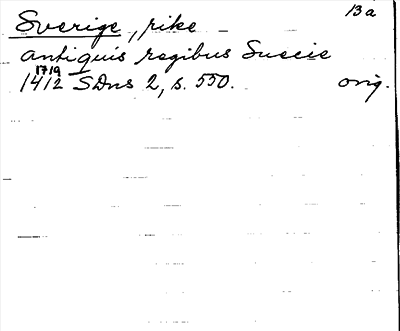 13a
Sverige, rike
antiquis regibus Suecie
17/9
1412 SDns 2, s. 550. orig.